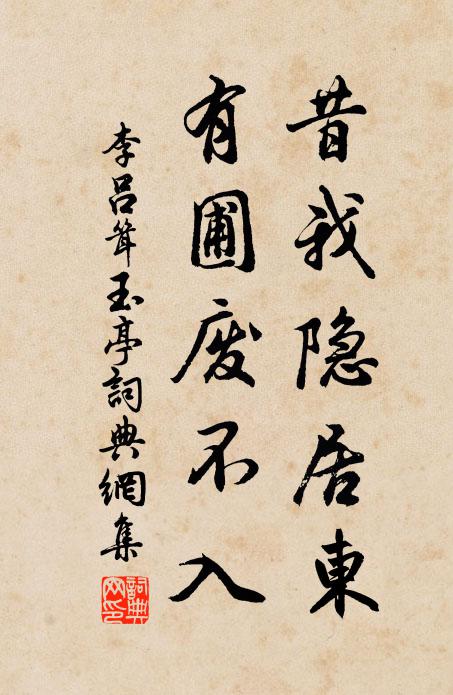 昔我隐居東
有圃废不入
李吕聳玉亭詞典網集
詞典网印